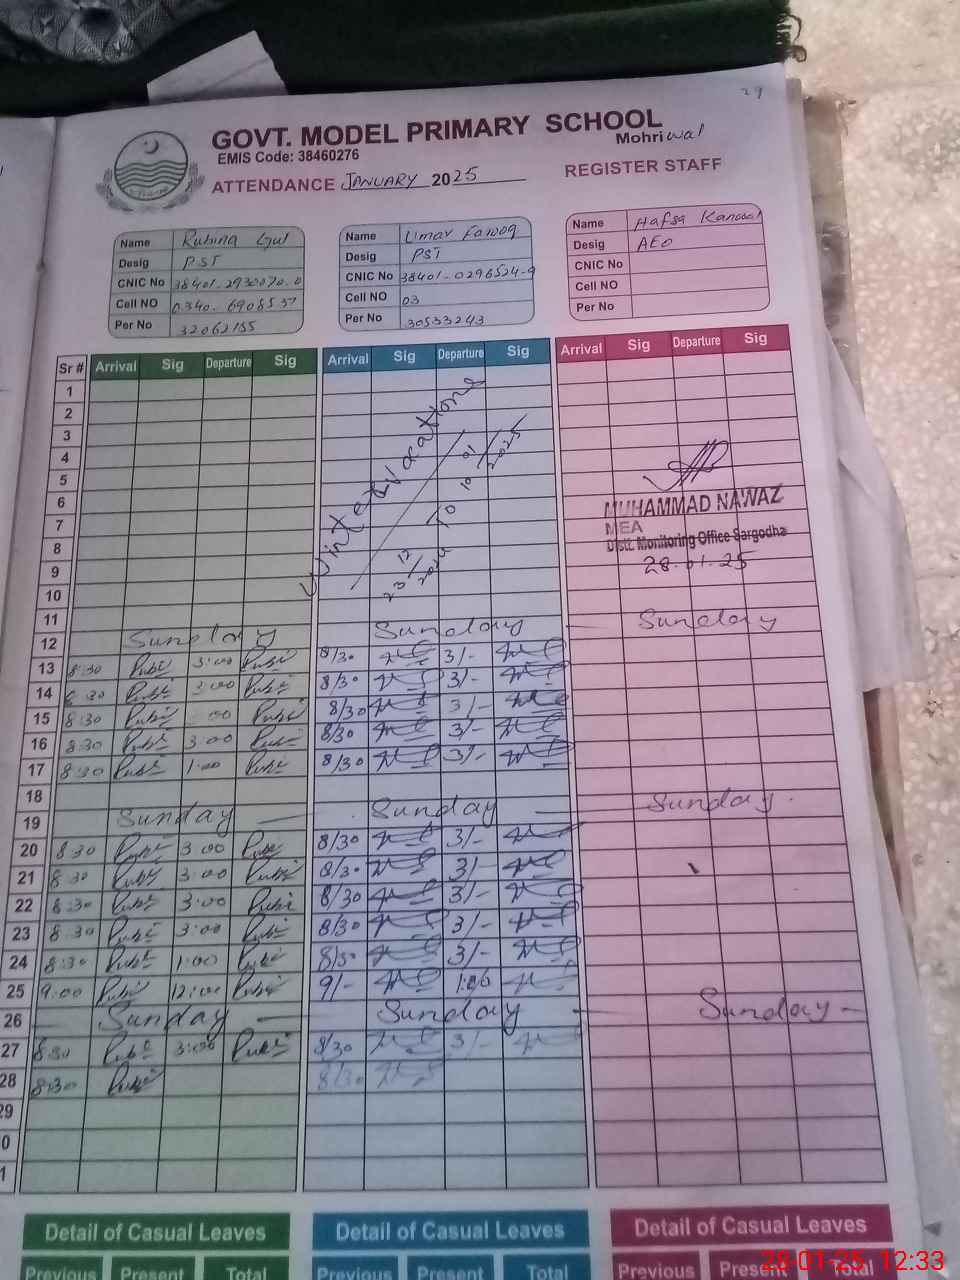 29
GOVT. MODEL PRIMARY SCHOOL
Mohriwal
EMIS Code: 38460276
ATTENDANCE JANUARY 2025 REGISTER STAFF
Name Rubina Gul
Desig PST
CNIC No 38401-2930070-0
Cell NO 0340-6908537
Per No 32062155
Name Umar Farooq
Desig PST
CNIC No 38401-0296524-9
Cell NO 03
Per No 30533243
Name Hafsa Kanwal
Desig AEO
CNIC No
Cell NO
Per No
Sr # Arrival Sig Departure Sig Arrival Sig Departure Sig Arrival Sig Departure Sig
1
2
3
4
5
6
7
8
9
10
11
Winter Vacations
23/12/2024 TO 10/01/2025
MUHAMMAD NAWAZ
MEA
Distt. Monitoring Office Sargodha
28.01.25
12 Sunday Sunday Sunday
13 8:30 Rubi 3:00 Rubi 8/30 3/-
14 8:30 Rubi 3:00 Rubi 8/30 3/-
15 8:30 Rubi :00 Rubi 8/30 3/-
16 8:30 Rubi 3:00 Rubi 8/30 3/-
17 8:30 Rubi 1:00 Rubi 8/30 3/-
18
19 Sunday Sunday Sunday
20 8:30 Rubi 3:00 Rubi 8/30 3/-
21 8:30 Rubi 3:00 Rubi 8/30 3/-
22 8:30 Rubi 3:00 Rubi 8/30 3/-
23 8:30 Rubi 3:00 Rubi 8/30 3/-
24 8:30 Rubi 1:00 Rubi 8/30 3/-
25 9:00 Rubi 12:00 Rubi 9/-
26 Sunday Sunday Sunday
27 8:30 Rubi 3:00 Rubi 8/30 3/-
28 8:30 Rubi 8/30
29
0
1
Detail of Casual Leaves Detail of Casual Leaves Detail of Casual Leaves
Previous Present Total Previous Present Total Previous Present Total
28-01-25 12:33